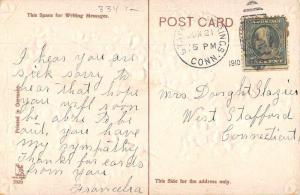 334 1-
This Space for Writing Messages.
POST CARD
I hear you are
sick sorry to
hear that hope
you will soon
be able to be
out, you have
my sympathy
Thanks for cards
from you
Francelia
STAFFORD SPRINGS
JUN 21
5 PM
1910
CONN.
Mrs. Dwight Glazier
West Stafford
Connecticut.
Printed in Germany
This Side for the address only.